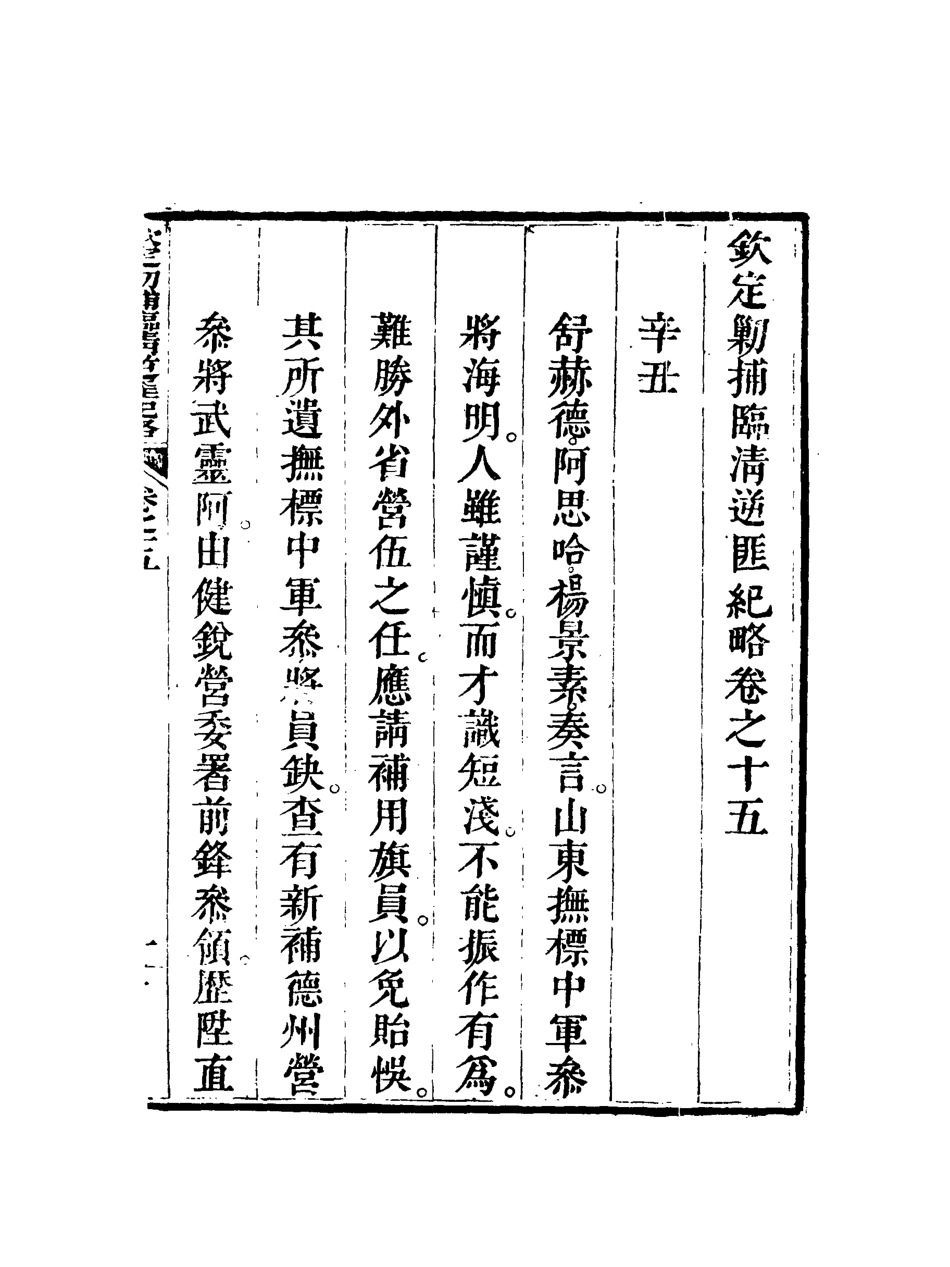 欽定剿捕臨清逆匪紀略卷之十五
辛丑
舒赫德。阿思哈。楊景素。奏言。山東撫標中軍叅
將海明。人雖謹慎。而才識短淺。不能振作有爲。
難勝外省營伍之任。應請補用旗員。以免貽悞。
其所遺撫標中軍叅將員缺。查有新補德州營
叅將武靈阿。由健銳營委署前鋒叅領。歷陞直